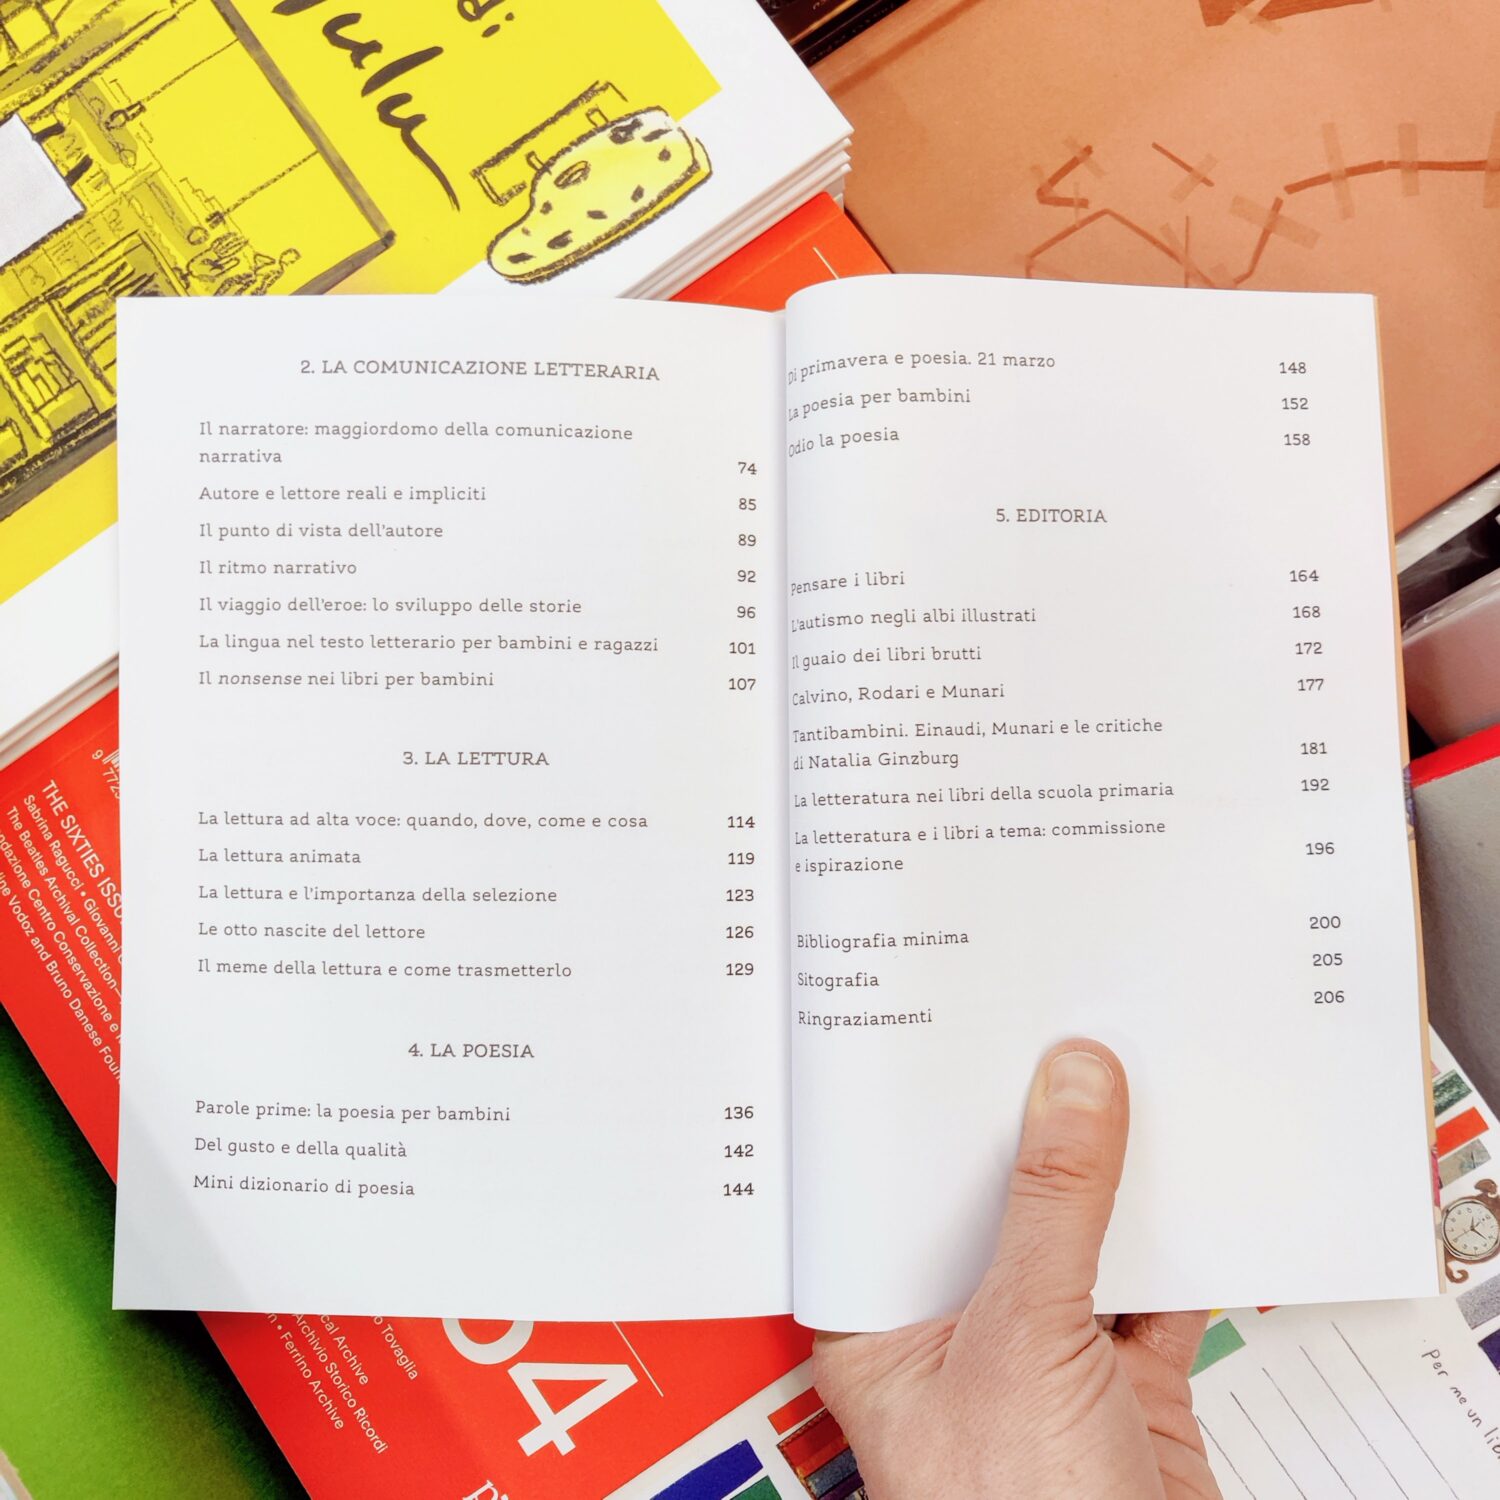 di
2. LA COMUNICAZIONE LETTERARIA
Il narratore: maggiordomo della comunicazione
narrativa 74
Autore e lettore reali e impliciti 85
Il punto di vista dell'autore 89
Il ritmo narrativo 92
Il viaggio dell'eroe: lo sviluppo delle storie 96
La lingua nel testo letterario per bambini e ragazzi 101
Il nonsense nei libri per bambini 107
3. LA LETTURA
La lettura ad alta voce: quando, dove, come e cosa 114
La lettura animata 119
La lettura e l'importanza della selezione 123
Le otto nascite del lettore 126
Il meme della lettura e come trasmetterlo 129
4. LA POESIA
Parole prime: la poesia per bambini 136
Del gusto e della qualità 142
Mini dizionario di poesia 144
Di primavera e poesia. 21 marzo 148
La poesia per bambini 152
Odio la poesia 158
5. EDITORIA
Pensare i libri 164
L'autismo negli albi illustrati 168
Il guaio dei libri brutti 172
Calvino, Rodari e Munari 177
Tantibambini. Einaudi, Munari e le critiche
di Natalia Ginzburg 181
La letteratura nei libri della scuola primaria 192
La letteratura e i libri a tema: commissione
e ispirazione 196
Bibliografia minima 200
Sitografia 205
Ringraziamenti 206
THE SIXTIES
Sabrina Ragucci • Giovanni
The Beatles Archival Collection—
Centro Conservazione e
Vodoz and Bruno Danese
Tovaglia
Archivio Storico Ricordi
• Ferrino Archive
Per me un